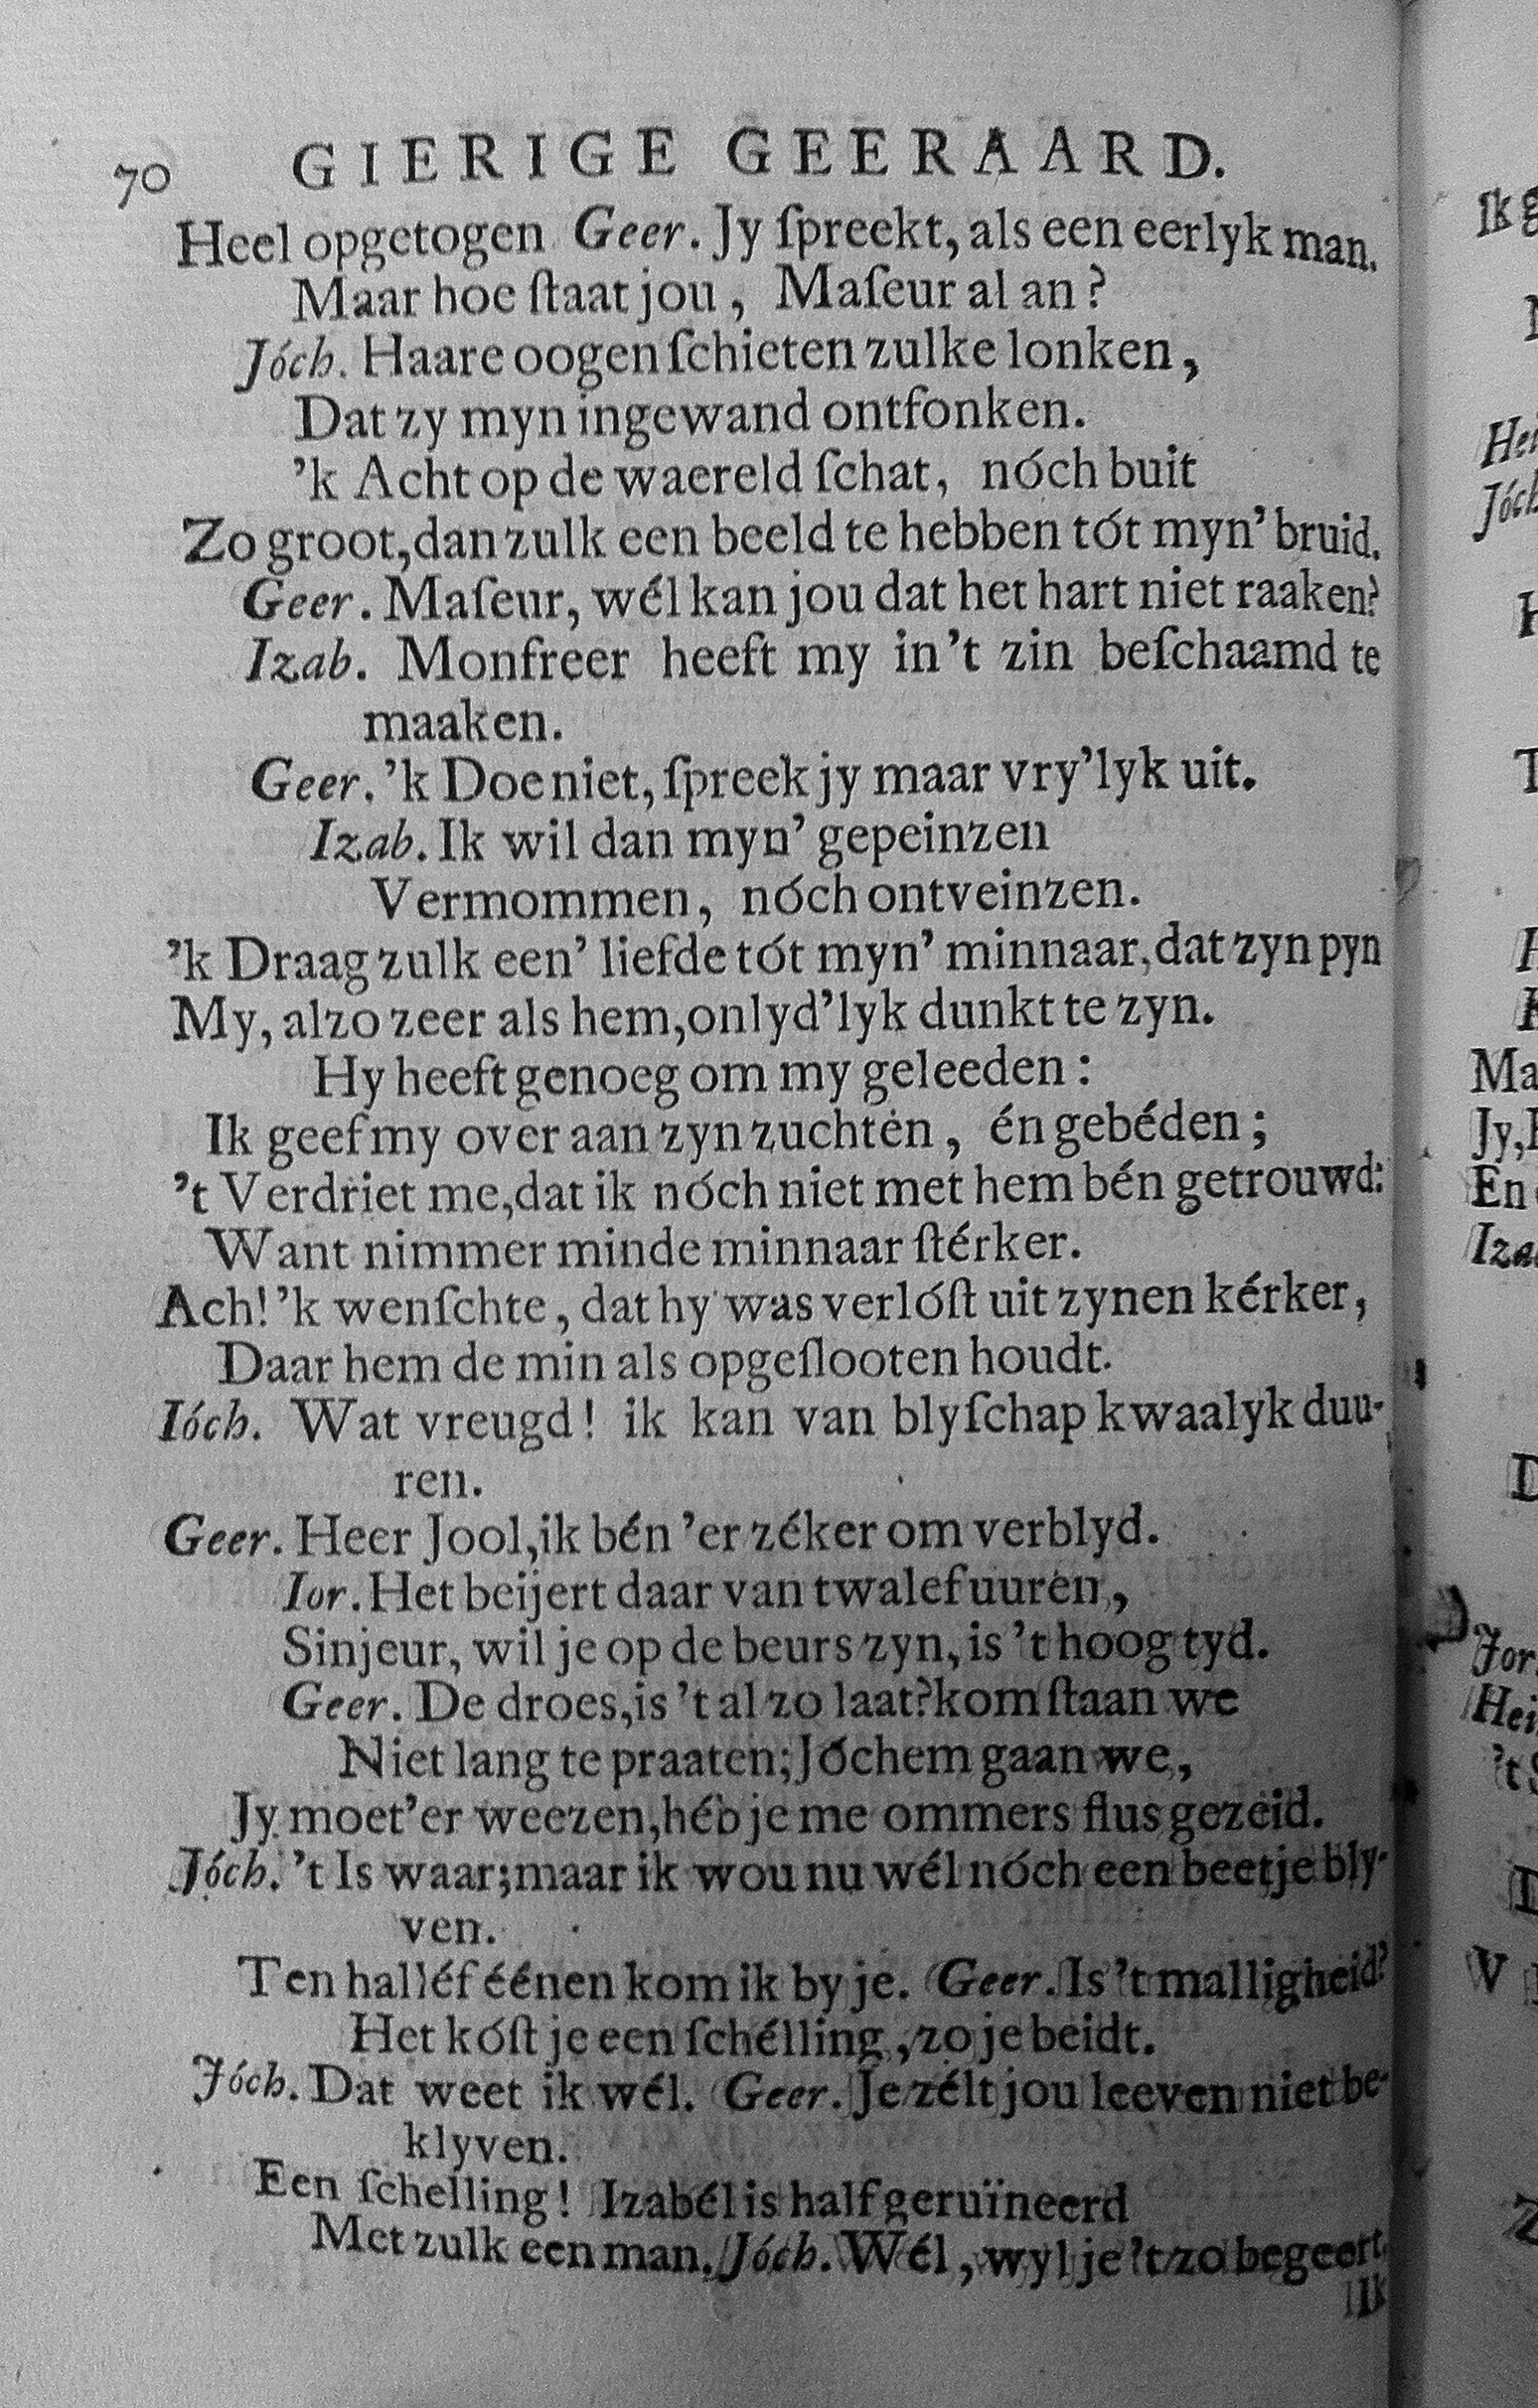 70 GIERIGE GEERAARD.
Heel opgetogen Geer. Jy ſpreekt, als een eerlyk man.
Maar hoe ſtaat jou, Maſeur al an?
Jóch. Haare oogen ſchieten zulke lonken,
Dat zy myn ingewand ontfonken.
'k Acht op de waereld ſchat, nóch buit
Zo groot, dan zulk een beeld te hebben tót myn' bruid.
Geer. Maſeur, wél kan jou dat het hart niet raaken?
Izab. Monfreer heeft my in't zin beſchaamd te
maaken.
Geer. 'k Doe niet, ſpreek jy maar vry'lyk uit.
Izab. Ik wil dan myn' gepeinzen
Vermommen, nóch ontveinzen.
'k Draag zulk een' liefde tót myn' minnaar, dat zyn pyn
My, alzo zeer als hem, onlyd'lyk dunkt te zyn.
Hy heeft genoeg om my geleeden:
Ik geef my over aan zyn zuchten, én gebéden;
't Verdriet me, dat ik nóch niet met hem bén getrouwd:
Want nimmer minde minnaar ſtérker.
Ach! 'k wenſchte, dat hy was verlóſt uit zynen kérker,
Daar hem de min als opgeſlooten houdt.
Ióch. Wat vreugd! ik kan van blyſchap kwaalyk duu-
ren.
Geer. Heer Jool, ik bén 'er zéker om verblyd.
Ior. Het beijert daar van twalef uuren,
Sinjeur, wil je op de beurs zyn, is 't hoog tyd.
Geer. De droes, is 't al zo laat? kom ſtaan we
Niet lang te praaten; Jóchem gaan we,
Jy moet'er weezen, héb je me ommers flus gezeid.
Jóch. 't Is waar; maar ik wou nu wél nóch een beetje bly-
ven.
Ten halléf éénen kom ik by je. Geer. Is 't malligheid?
Het kóſt je een ſchélling, zo je beidt.
Jóch. Dat weet ik wél. Geer. Je zélt jou leeven niet be-
klyven.
Een ſchelling! Izabél is half geruïneerd
Met zulk een man. Jóch. Wél, wyl je 't zo begeert,
Ik
Ik
Jóch
Ma
En
Iza
Jor
Hei